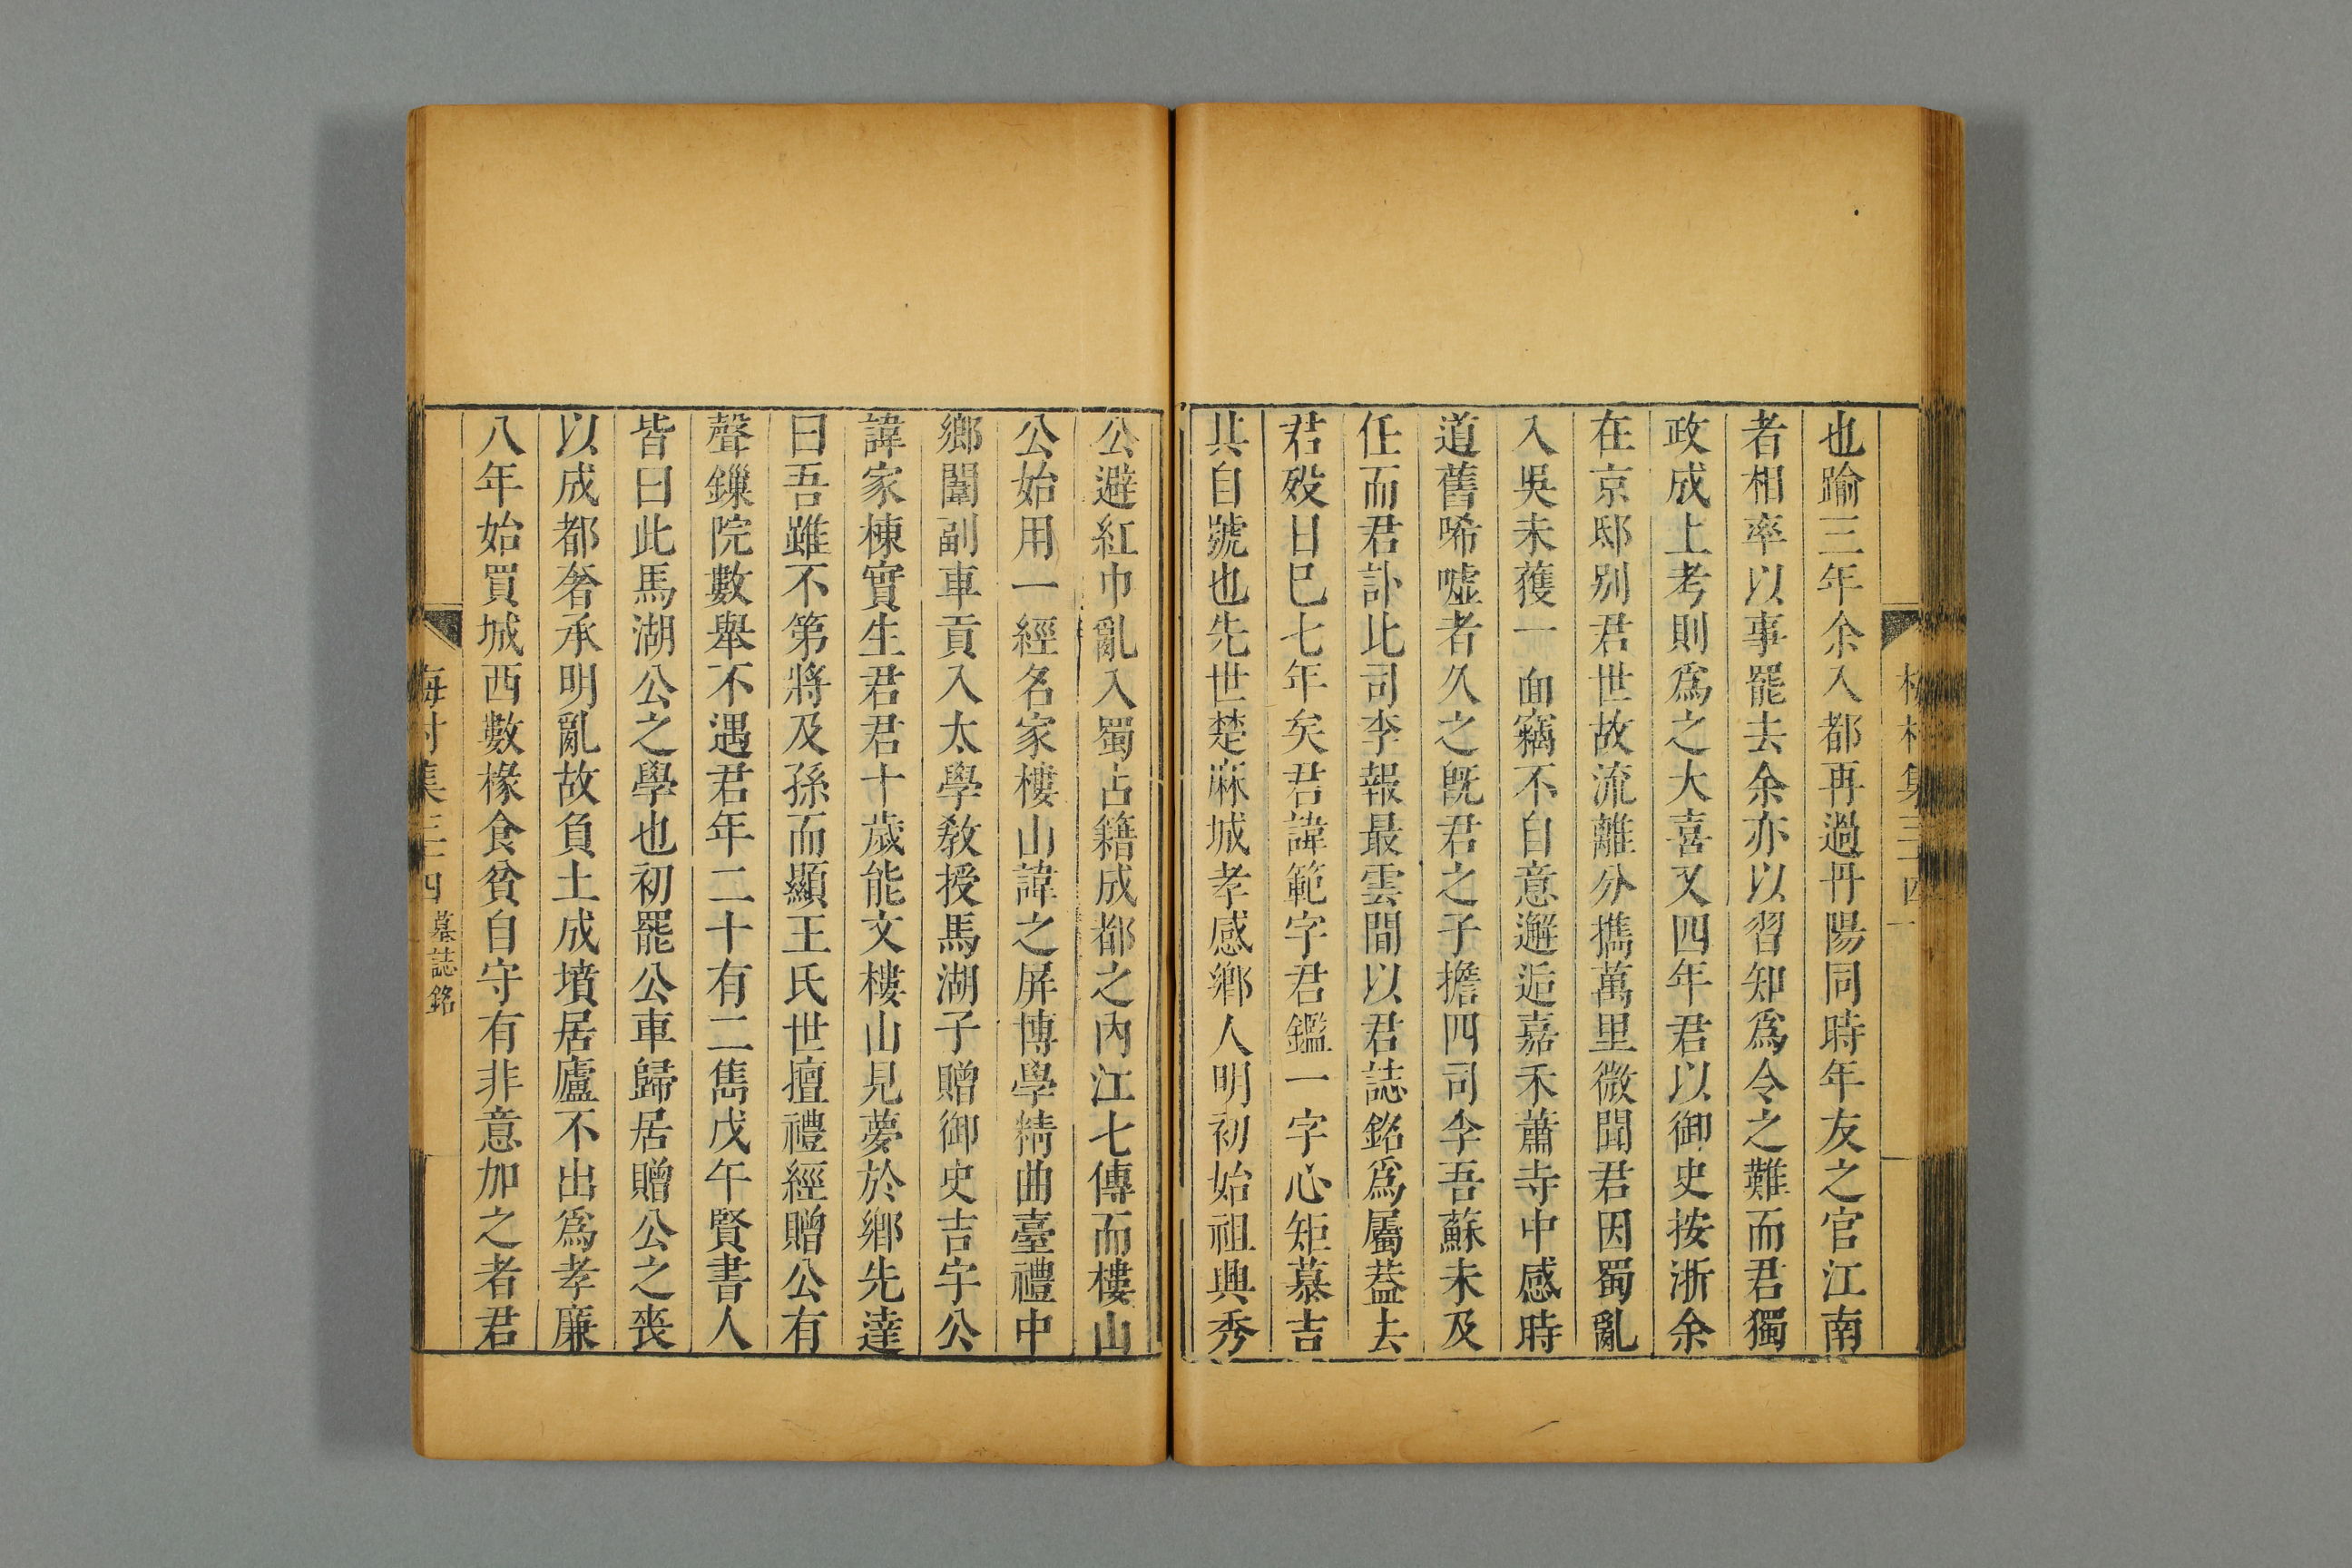 梅村集三十四
也踰三年余入都再過丹陽同時年友之官江南
者相率以事罷去余亦以習知爲令之難而君獨
政成上考則爲之大喜又四年君以御史按浙余
在京邸别君世故流離分攜萬里微聞君因蜀亂
入吳未獲一面竊不自意邂逅嘉禾蕭寺中感時
道舊唏噓者久之旣君之子擔四司李吾蘇未及
任而君訃比司李報最雲間以君誌銘爲屬葢去
君歿日已七年矣君諱範字君鑑一字心矩慕吉
其自號也先世楚麻城孝感鄉人明初始祖興秀
公避紅巾亂入蜀占籍成都之內江七傳而樓山
公始用一經名家樓山諱之屏博學精曲臺禮中
鄉闈副車貢入太學敎授馬湖子贈御史吉宇公
諱家棟實生君君十歲能文樓山見夢於鄉先達
曰吾雖不第將及孫而顯王氏世擅禮經贈公有
聲鏁院數舉不遇君年二十有二雋戊午賢書人
皆曰此馬湖公之學也初罷公車歸居贈公之喪
以成都奢承明亂故負土成墳居廬不出爲孝廉
八年始買城西數椽食貧自守有非意加之者君
梅村集三十四 墓誌銘